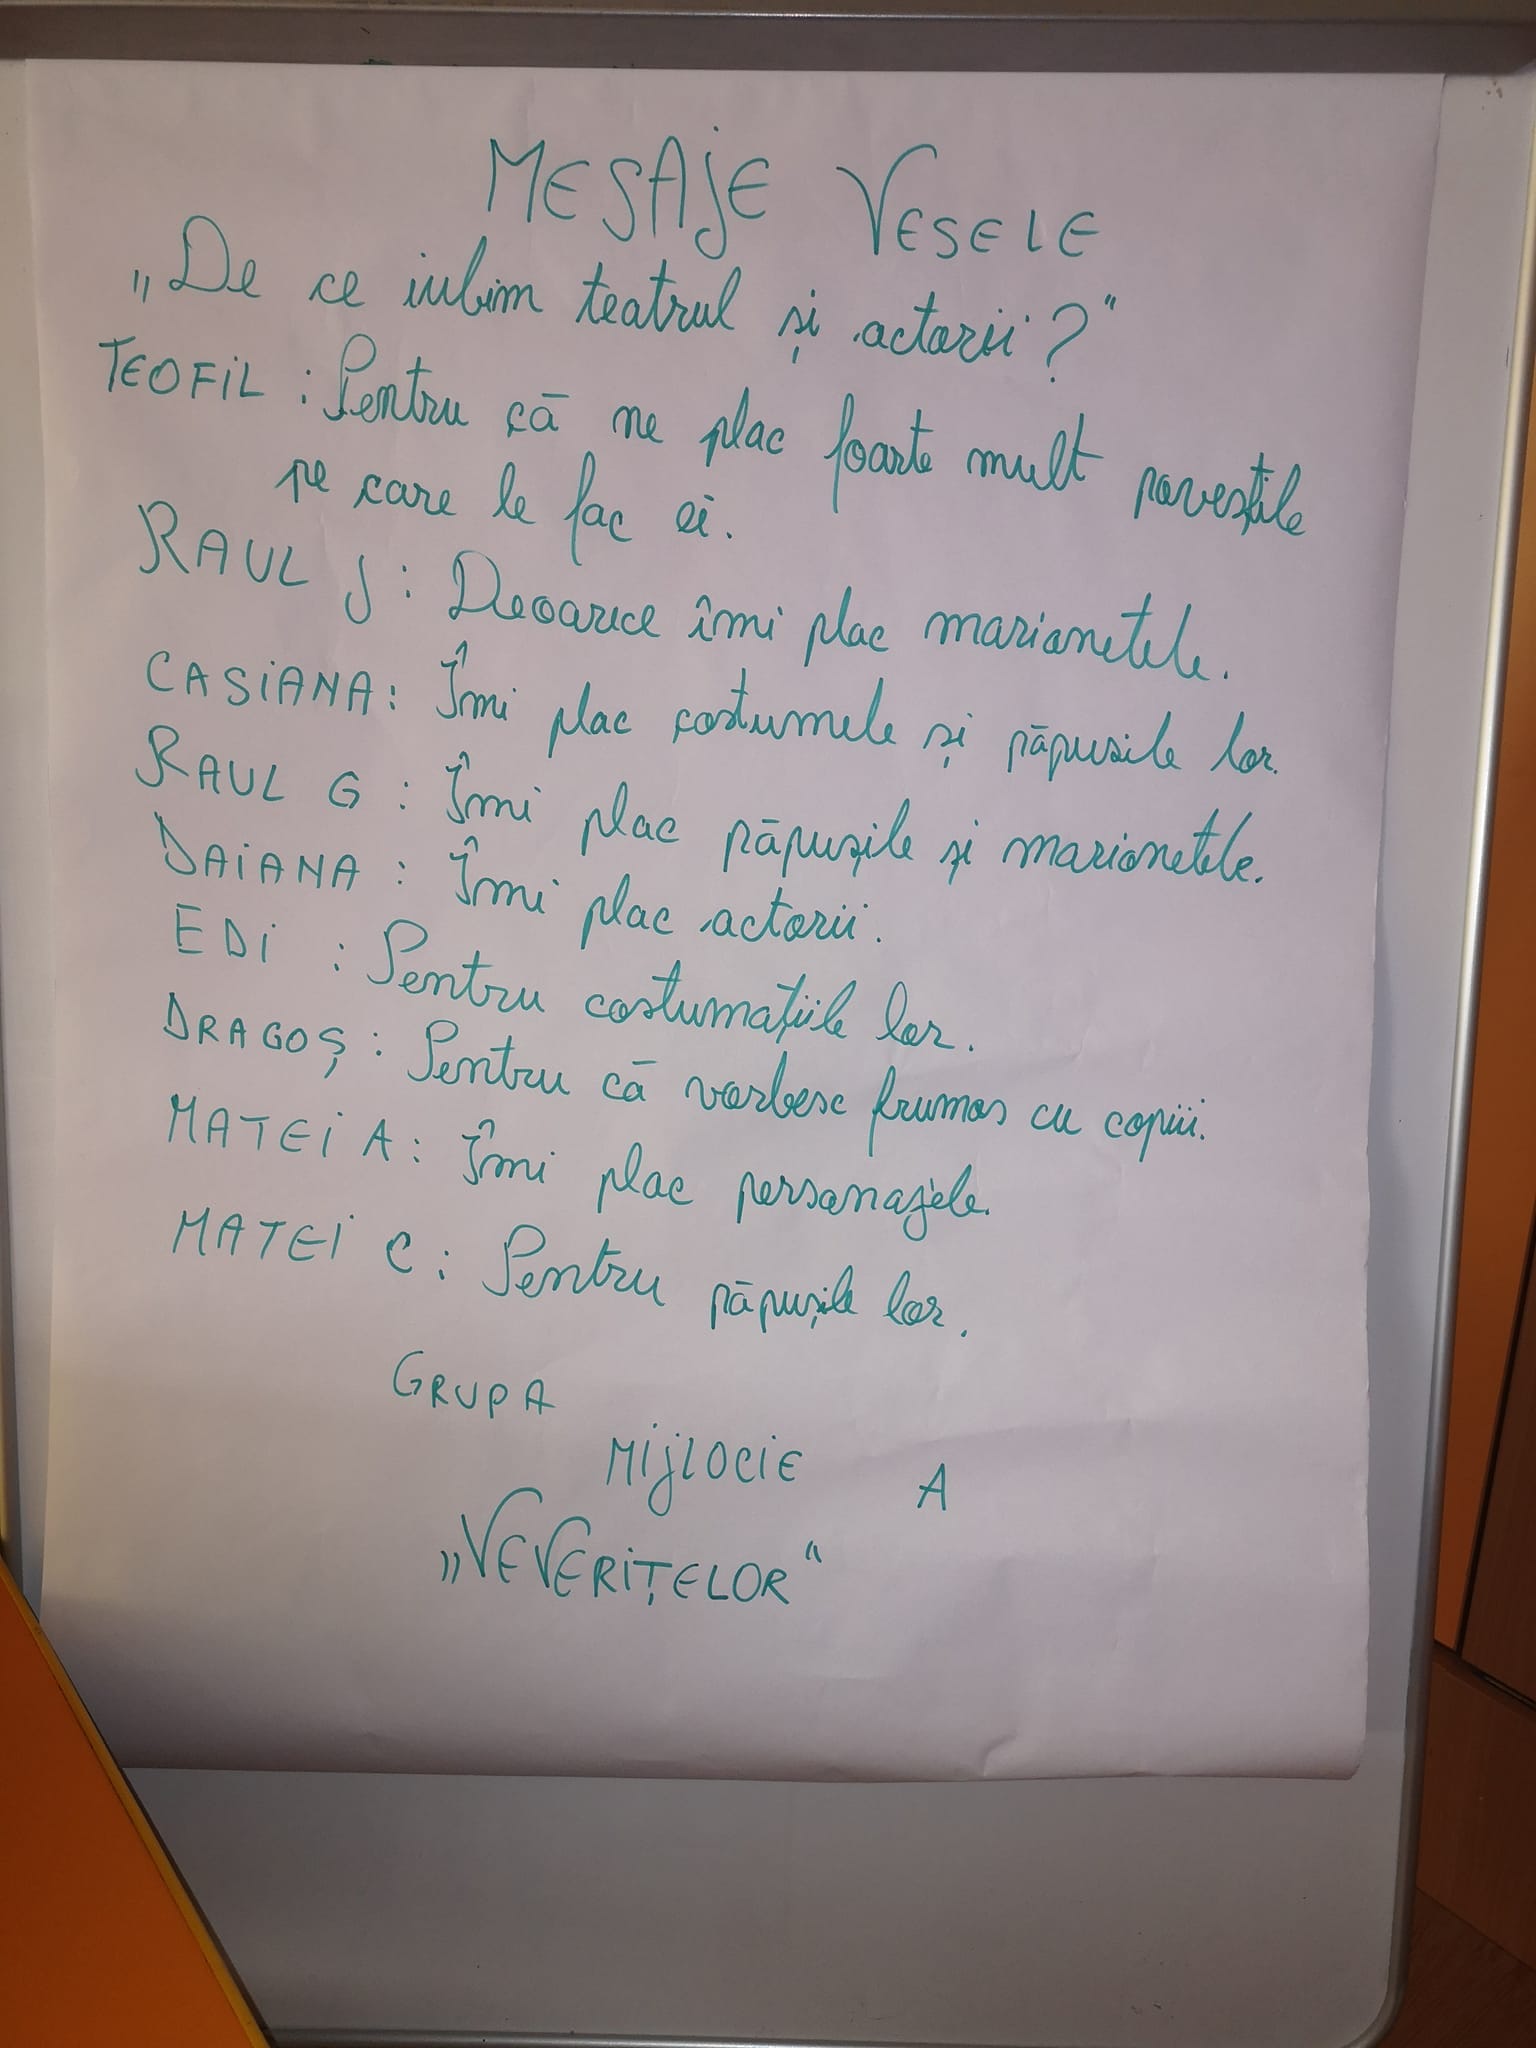 MESAJE VESELE
„De ce iubim teatrul și actorii?”
TEOFIL : Pentru că ne plac foarte mult poveștile
pe care le fac ei.
RAUL J : Deoarece îmi plac marionetele.
CASIANA : Îmi plac costumele și păpusile lor.
RAUL G : Îmi plac păpușile și marionetele.
DAIANA : Îmi plac actorii.
EDI : Pentru costumațiile lor.
DRAGOȘ : Pentru că vorbesc frumos cu copiii.
MATEI A : Îmi plac personajele.
MATEI C : Pentru păpușile lor.
GRUPA
MIJLOCIE A
„VEVERIȚELOR”